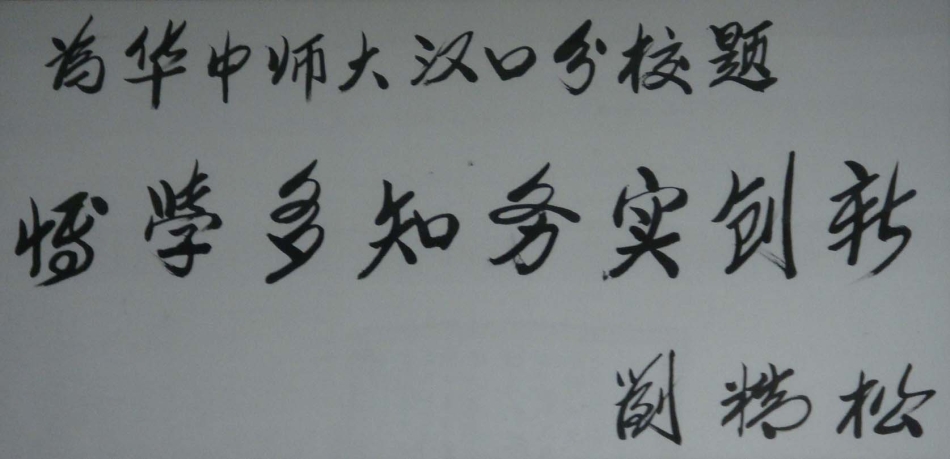 为华中师大汉口分校题
博学多知务实创新
刘精松